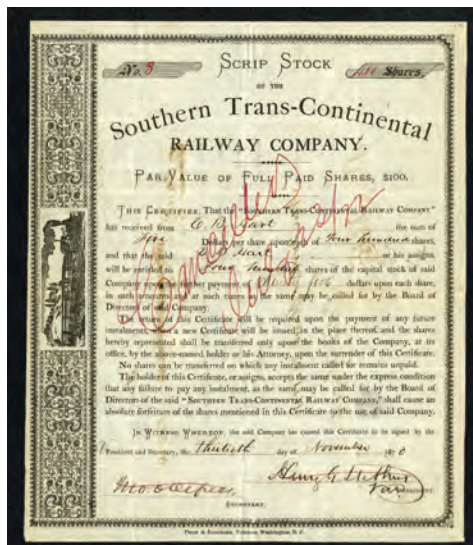 No. 8
SCRIP STOCK
400 Shares,
OF THE
Southern Trans-Continental
RAILWAY COMPANY.
PAR VALUE OF FULL PAID SHARES, $100.
THIS CERTIFIES, That the "SOUTHERN TRANS-CONTINENTAL RAILWAY COMPANY"
has received from E. B. Hart the sum of
five Dollars per share upon each of four hundred shares,
and that the said E. B. Hart or his assigns
will be entitled to four hundred shares of the capital stock of said
Company upon the further payment of ninety five dollars upon each share,
in such amounts and at such times as the same may be called for by the Board of
Directors of said Company.
The return of this Certificate will be required upon the payment of any future
instalments, when a new Certificate will be issued in the place thereof, and the shares
hereby represented shall be transferred only upon the books of the Company, at its
office, by the above-named holder or his Attorney, upon the surrender of this Certificate.
No shares can be transferred on which any instalment called for remains unpaid.
The holder of this Certificate, or assigns, accepts the same under the express condition
that any failure to pay any instalment, as the same may be called for by the Board of
Directors of the said "SOUTHERN TRANS-CONTINENTAL RAILWAY COMPANY," shall cause an
absolute forfeiture of the shares mentioned in this Certificate to the use of said Company.
IN WITNESS WHEREOF, the said Company has caused this Certificate to be signed by the
President and Secretary, the thirtieth day of November 1870
Cancelled
SECRETARY.